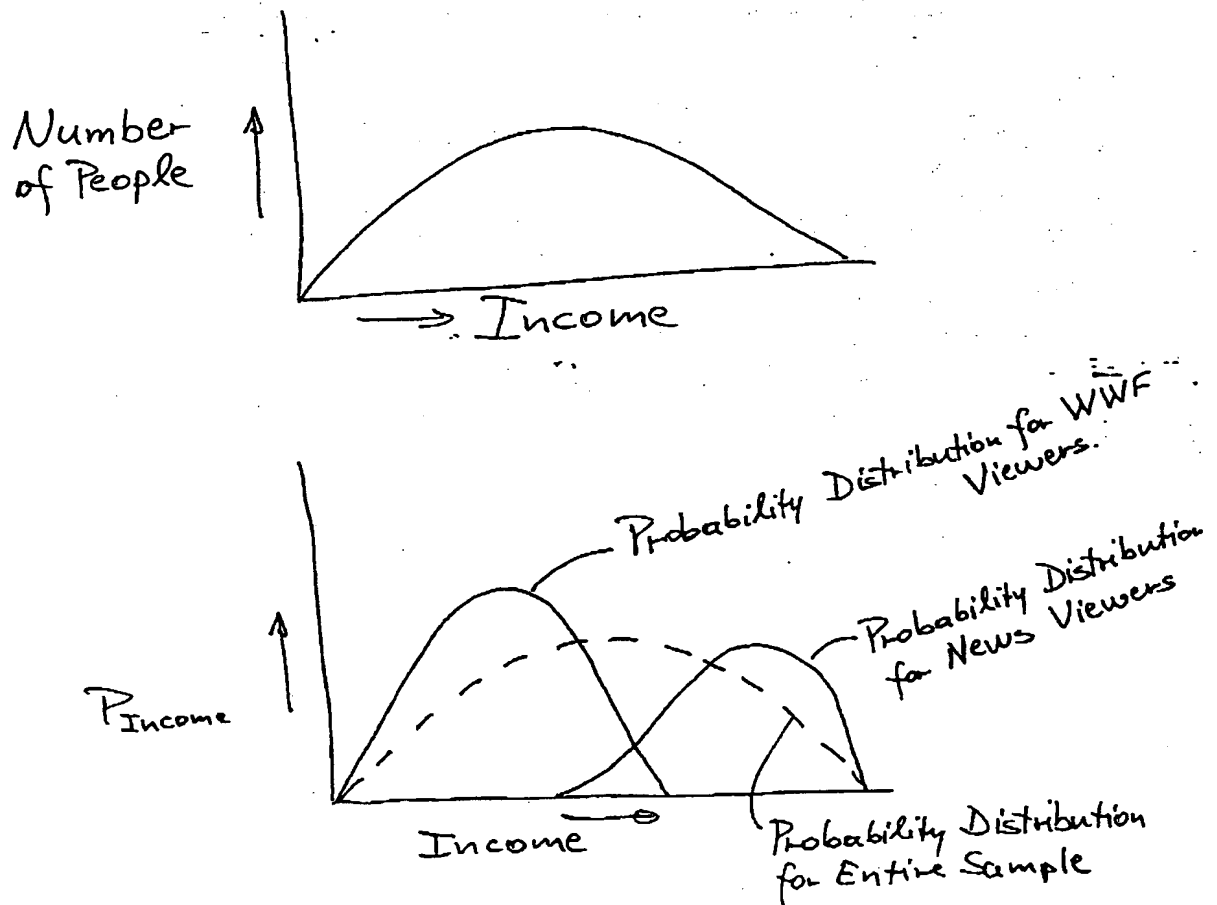 Number
of People
Income
Probability Distribution for WWF
Viewers.
Probability Distribution
for News Viewers
PIncome
Income
Probability Distribution
for Entire Sample